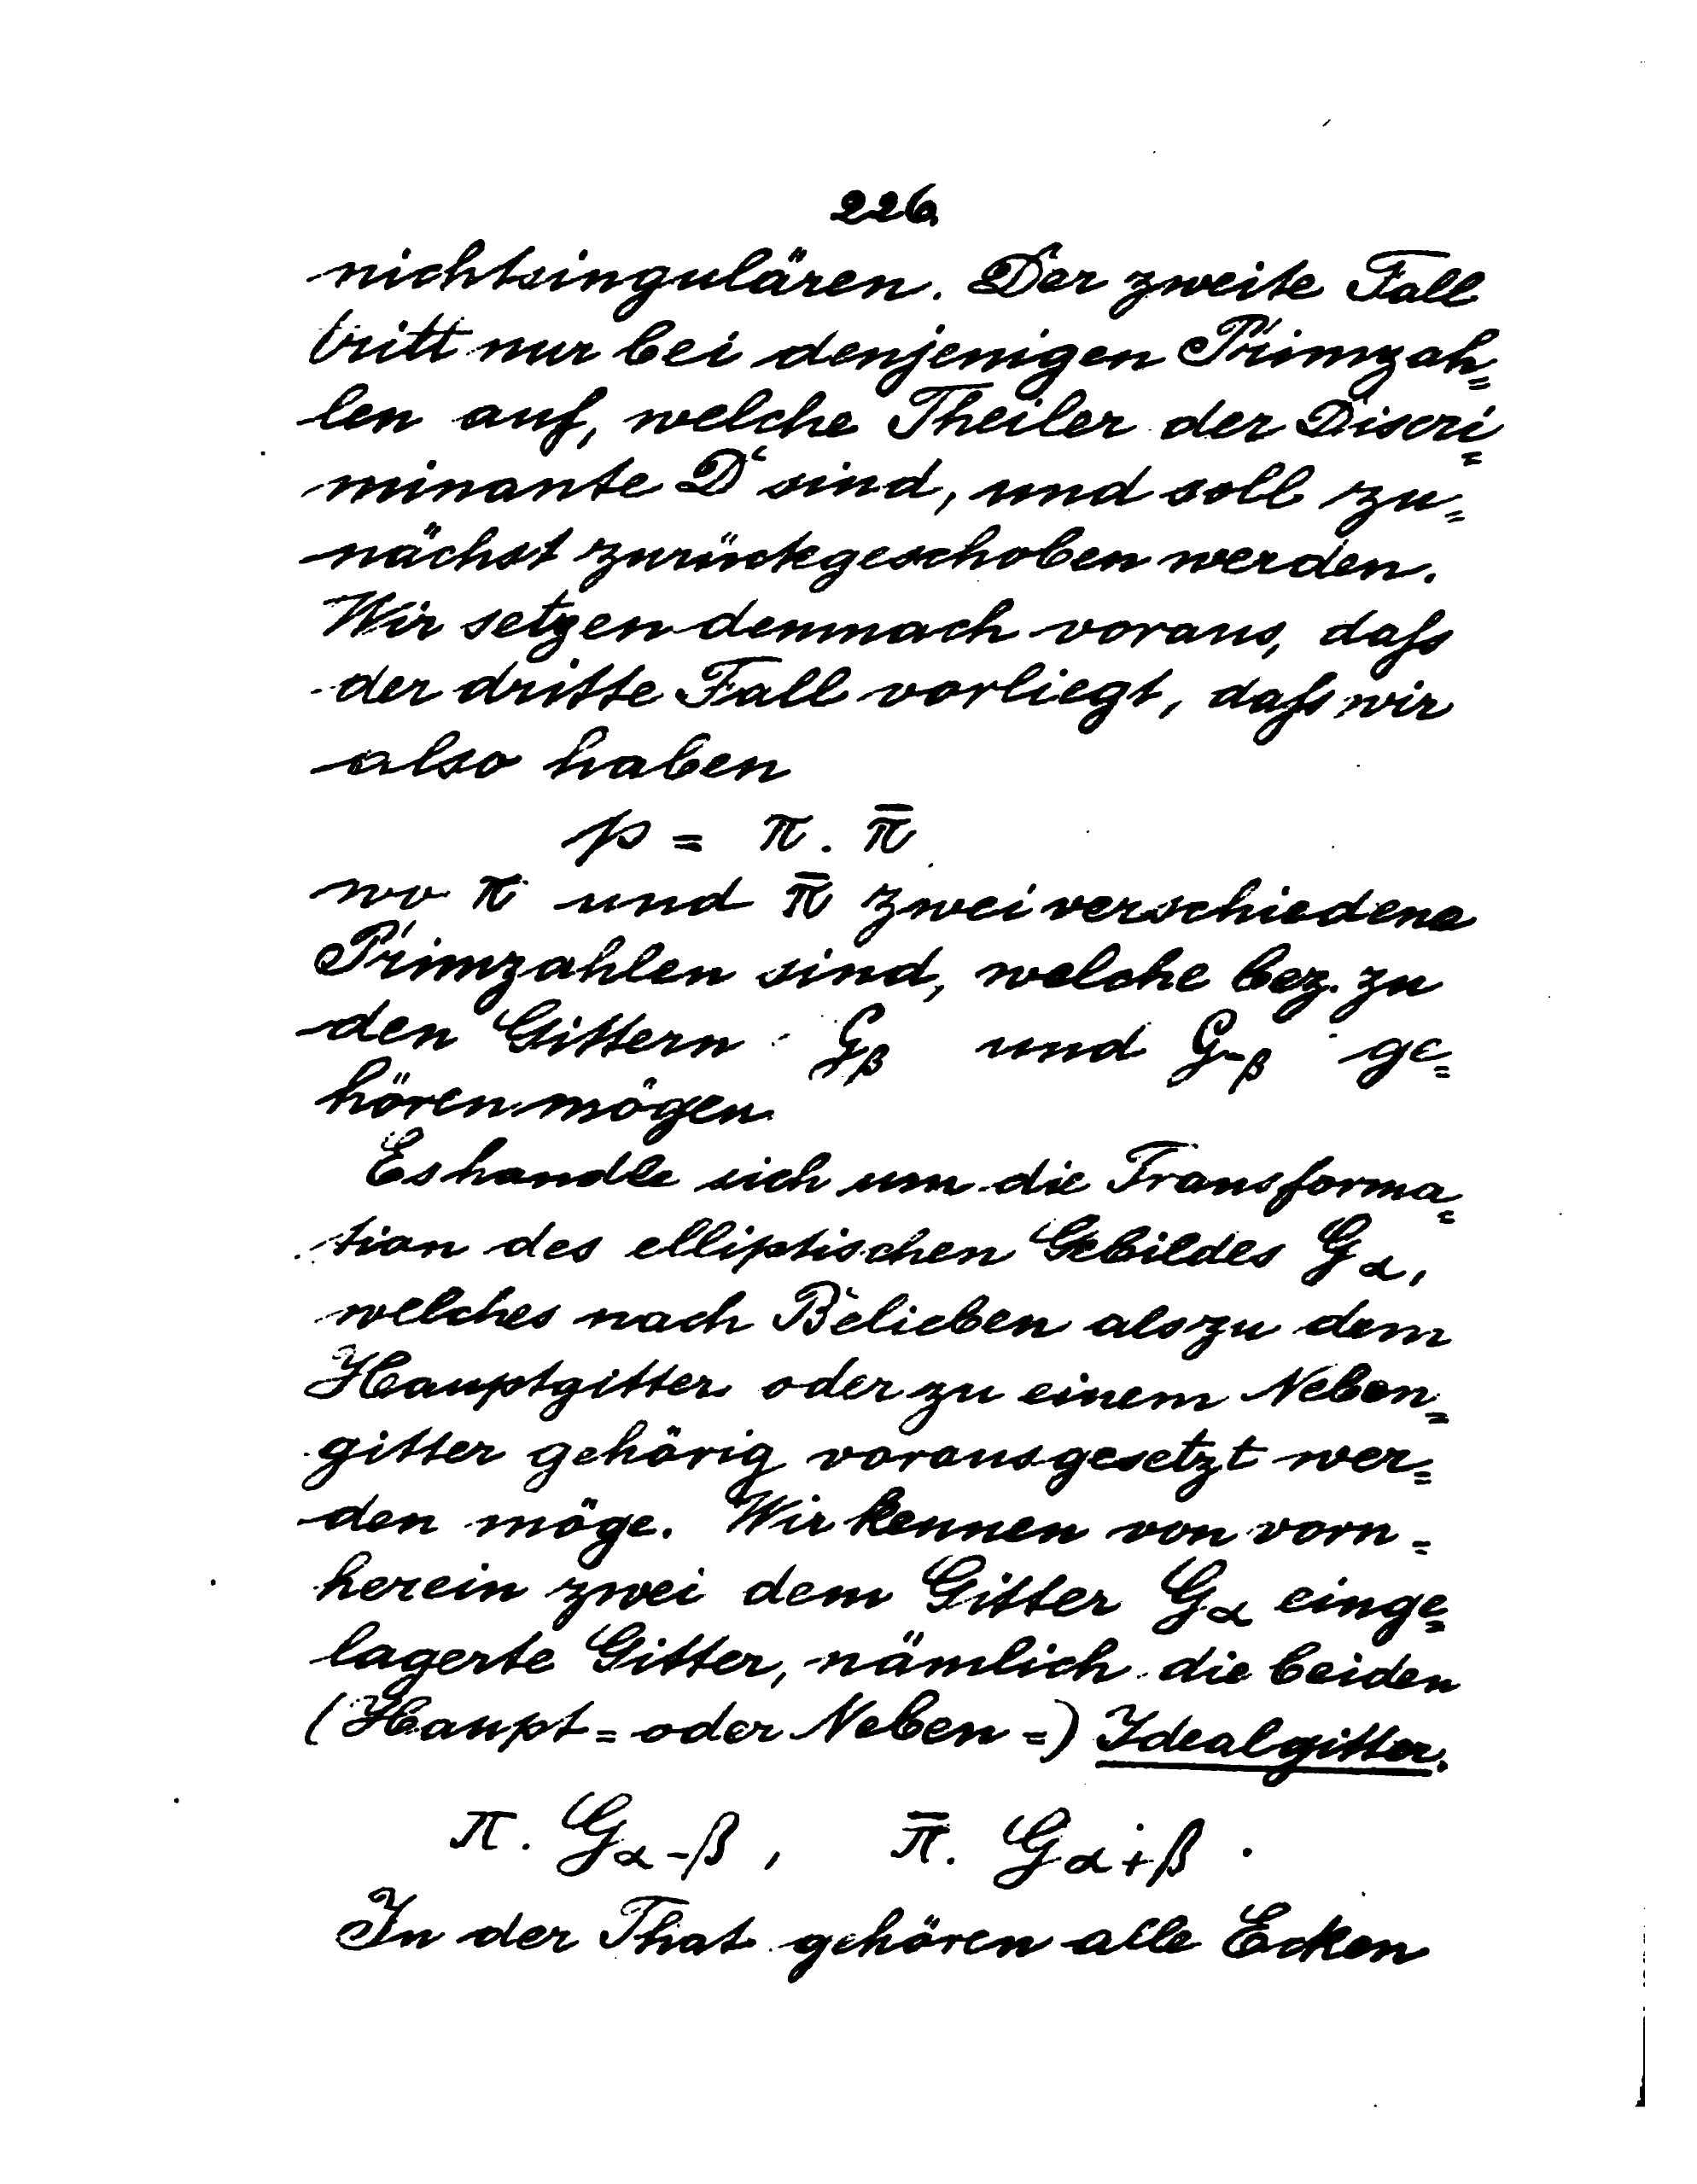 226.
nichtsingulären. Der zweite Fall
tritt nur bei denjenigen Primzah=
len auf, welche Theiler der Discri=
minante D' sind, und soll zu=
nächst zurückgeschoben werden.
Wir setzen demnach voraus, daſs
der dritte Fall vorliegt, daſs wir
also haben
p = π . π̄
wo π und π̄ zwei verschiedene
Primzahlen sind, welche bez. zu
den Gittern G_β und G_-β ge=
hören mögen.
Es handle sich um die Transforma=
tion des elliptischen Gebildes G_α,
welches nach Belieben als zu dem
Hauptgitter oder zu einem Neben=
gitter gehörig vorausgesetzt wer=
den möge. Wir kennen von vorn=
herein zwei dem Gitter G_α einge=
lagerte Gitter, nämlich die beiden
(Haupt= oder Neben=) Idealgitter.
π . G_α-β , π̄ . G_α+β .
In der That gehören alle Ecken